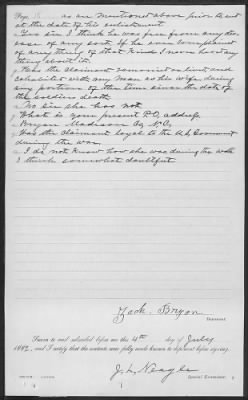 as are mentioned above prior to and
at the date of his enlistment
a. Yes sir I think he was free from any dis-
ease of any sort. If he ever complained
of any thing of that kind I never heard any
thing about it.
q. Has the claimant
cohabited with any man as his wife during
any portion of the time since the date of
the soldiers death
a. No sir she has not
q. What is your present P.O. address
a. Bryson Madison Co N.C.
q. Was the claimant loyal to the U.S. Goverment
during the war
a. I do not know how she was during the war
I think somewhat doubtful
Zack. Bryan
Deponent
Sworn to and subscribed before me this 4th day of July
188 , and I certify that the contents were fully made known to deponent before signing.
J. L. Neagle
Special Examiner.